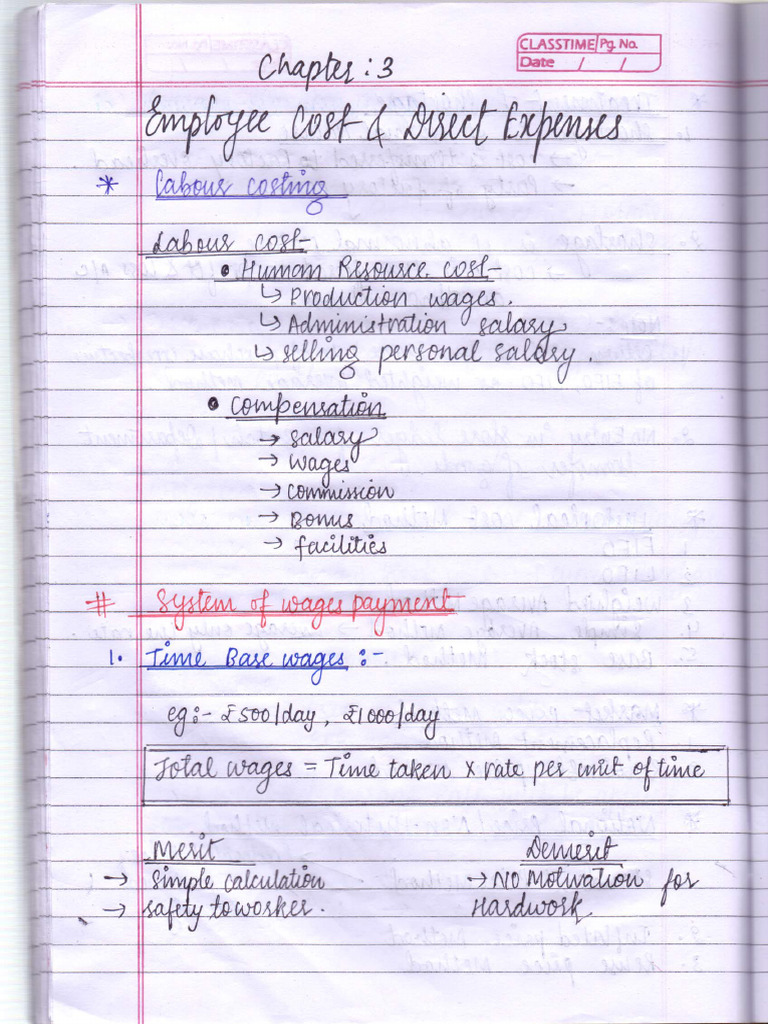 CLASSTIME Pg. No.
Date / /
Chapter : 3
Employee Cost & Direct Expenses
* Labour costing
Labour cost-
• Human Resource cost-
↳ Production wages.
↳ Administration salary
↳ selling personal salary.
• Compensation
→ salary
→ wages
→ commission
→ Bonus
→ facilities
# System of wages payment
1. Time Base wages :-
eg:- ₹500/day, ₹1000/day
Total wages = Time taken × rate per unit of time
Merit Demerit
→ simple calculation → No Motivation for
→ safety to worker. Hardwork